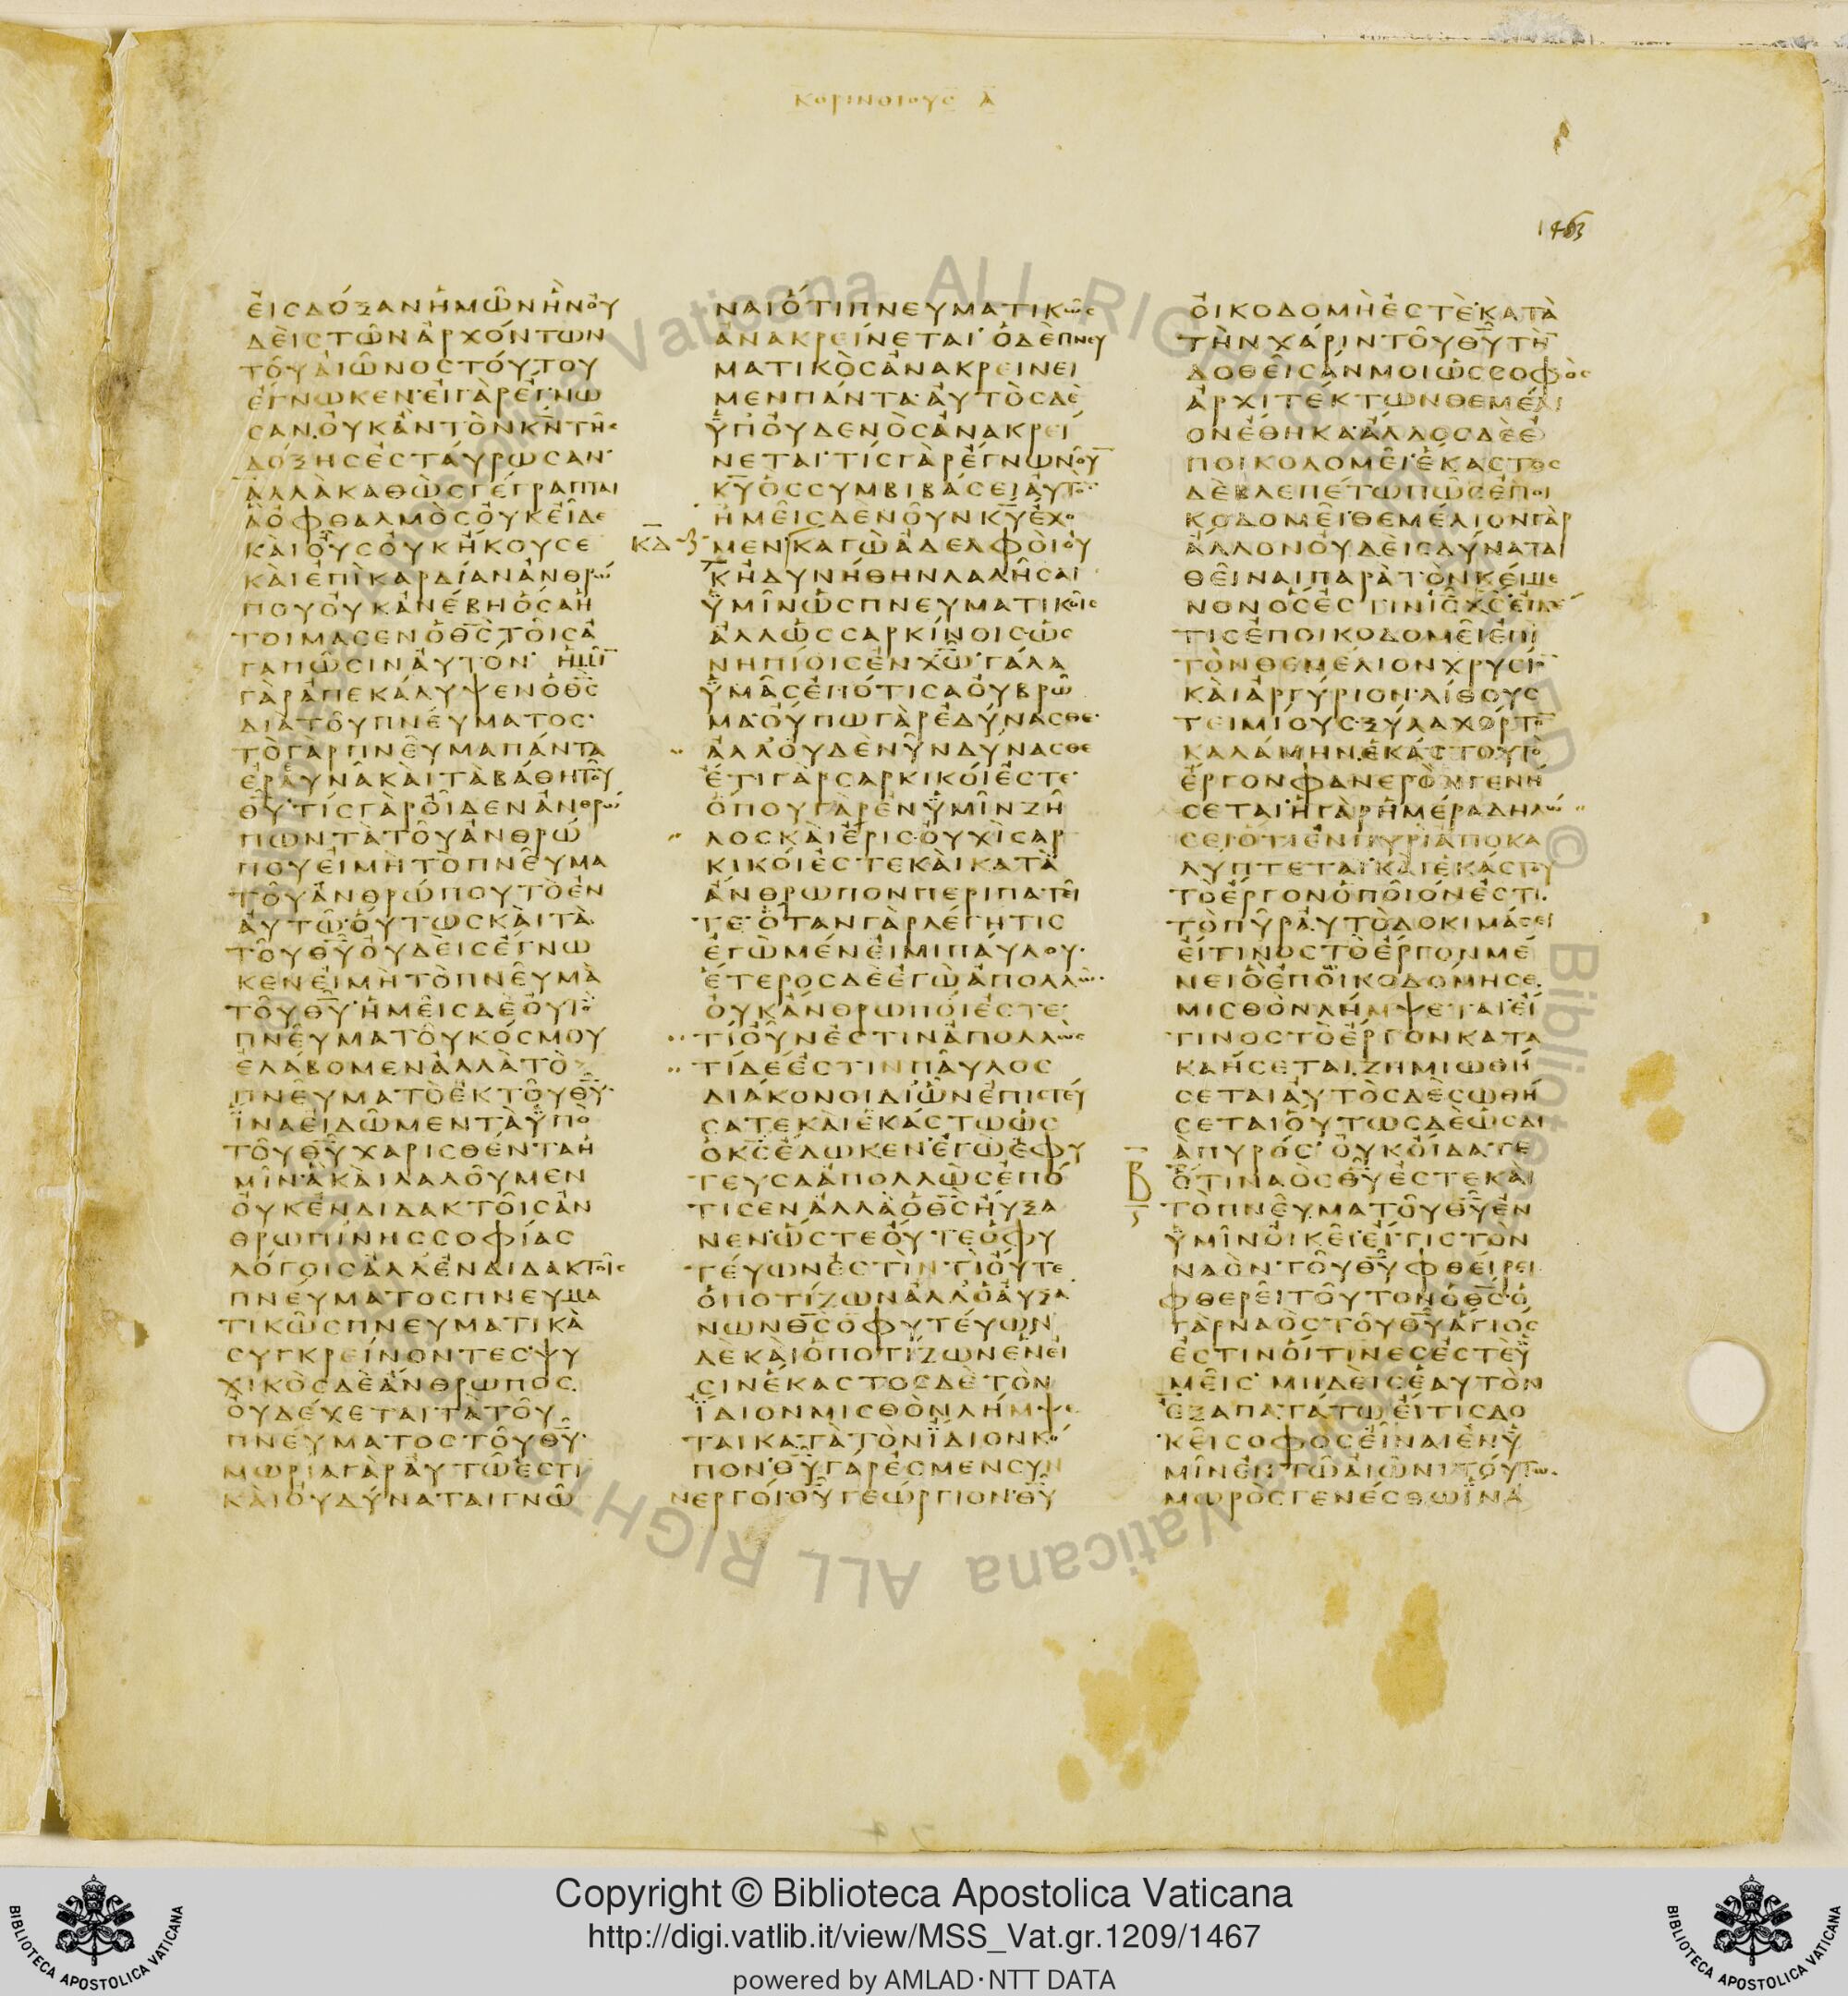 ΚΟΡΙΝΘΙΟΥΣ Α
1463
ΕΙϹΔΟΞΑΝΗΜΩΝΗΝΟΥ
ΔΕΙϹΤΩΝΑΡΧΟΝΤΩΝ
ΤΟΥΑΙΩΝΟϹΤΟΥΤΟΥ
ΕΓΝΩΚΕΝ·ΕΙΓΑΡΕΓΝΩ
ϹΑΝ·ΟΥΚΑΝΤΟΝΚΝΤΗϹ
ΔΟΞΗϹΕϹΤΑΥΡΩϹΑΝ·
ΑΛΛΑΚΑΘΩϹΓΕΓΡΑΠΤΑΙ
ΑΟΦΘΑΛΜΟϹΟΥΚΕΙΔΕ
ΚΑΙΟΥϹΟΥΚΗΚΟΥϹΕ
ΚΑΙΕΠΙΚΑΡΔΙΑΝΑΝΘΡΩ
ΠΟΥΟΥΚΑΝΕΒΗΟϹΑΗ
ΤΟΙΜΑϹΕΝΟΘ̅Ϲ̅ΤΟΙϹΑ
ΓΑΠΩϹΙΝΑΥΤΟΝ· ΗΜΙ̅
ΓΑΡΑΠΕΚΑΛΥΨΕΝΟΘ̅Ϲ̅
ΔΙΑΤΟΥΠΝΕΥΜΑΤΟϹ·
ΤΟΓΑΡΠΝΕΥΜΑΠΑΝΤΑ
ΕΡΑΥΝΑΚΑΙΤΑΒΑΘΗΤΟΥ
Θ̅Υ̅·ΤΙϹΓΑΡΟΙΔΕΝΑΝΘΡΩ
ΠΩΝΤΑΤΟΥΑΝΘΡΩ
ΠΟΥΕΙΜΗΤΟΠΝΕΥΜΑ
ΤΟΥΑΝΘΡΩΠΟΥΤΟΕΝ
ΑΥΤΩ·ΟΥΤΩϹΚΑΙΤΑ
ΤΟΥΘ̅Υ̅ΟΥΔΕΙϹΕΓΝΩ
ΚΕΝΕΙΜΗΤΟΠΝΕΥΜΑ
ΤΟΥΘ̅Υ̅·ΗΜΕΙϹΔΕΟΥΤΟ
ΠΝΕΥΜΑΤΟΥΚΟϹΜΟΥ
ΕΛΑΒΟΜΕΝΑΛΛΑΤΟ
ΠΝΕΥΜΑΤΟΕΚΤΟΥΘ̅Υ̅·
ΪΝΑΕΙΔΩΜΕΝΤΑΫΠΟ
ΤΟΥΘ̅Υ̅ΧΑΡΙϹΘΕΝΤΑΗ
ΜΙΝ·ΑΚΑΙΛΑΛΟΥΜΕΝ
ΟΥΚΕΝΔΙΔΑΚΤΟΙϹΑΝ
ΘΡΩΠΙΝΗϹϹΟΦΙΑϹ
ΛΟΓΟΙϹΑΛΛΕΝΔΙΔΑΚΤΟΙϹ
ΠΝΕΥΜΑΤΟϹΠΝΕΥΜΑ
ΤΙΚΩϹΠΝΕΥΜΑΤΙΚΑ
ϹΥΓΚΡΕΙΝΟΝΤΕϹ·ΨΥ
ΧΙΚΟϹΔΕΑΝΘΡΩΠΟϹ
ΟΥΔΕΧΕΤΑΙΤΑΤΟΥ
ΠΝΕΥΜΑΤΟϹΤΟΥΘ̅Υ̅·
ΜΩΡΙΑΓΑΡΑΥΤΩΕϹΤΙ
ΚΑΙΟΥΔΥΝΑΤΑΙΓΝΩ
ΝΑΙΟΤΙΠΝΕΥΜΑΤΙΚΩϹ
ΑΝΑΚΡΕΙΝΕΤΑΙ·ΟΔΕΠΝΕΥ
ΜΑΤΙΚΟϹΑΝΑΚΡΕΙΝΕΙ
ΜΕΝΠΑΝΤΑ·ΑΥΤΟϹΔΕ
ΫΠΟΥΔΕΝΟϹΑΝΑΚΡΕΙ
ΝΕΤΑΙ·ΤΙϹΓΑΡΕΓΝΩΝΟΥ̅
Κ̅Υ̅ΟϹϹΥΜΒΙΒΑϹΕΙΑΥΤΟ̅·
ΗΜΕΙϹΔΕΝΟΥΝΚ̅Υ̅ΕΧΟ
ΚΔ
ΜΕΝ·ΚΑΓΩΑΔΕΛΦΟΙΟΥ
ΚΗΔΥΝΗΘΗΝΛΑΛΗϹΑΙ
ΫΜΙΝΩϹΠΝΕΥΜΑΤΙΚΟΙϹ
ΑΛΛΩϹϹΑΡΚΙΝΟΙϹ·ΩϹ
ΝΗΠΙΟΙϹΕΝΧ̅Ω̅·ΓΑΛΑ
ΫΜΑϹΕΠΟΤΙϹΑΟΥΒΡΩ
ΜΑ·ΟΥΠΩΓΑΡΕΔΥΝΑϹΘΕ·
ΑΛΛΟΥΔΕΝΥΝΔΥΝΑϹΘΕ
ΕΤΙΓΑΡϹΑΡΚΙΚΟΙΕϹΤΕ·
ΟΠΟΥΓΑΡΕΝΫΜΙΝΖΗ
ΛΟϹΚΑΙΕΡΙϹ·ΟΥΧΙϹΑΡ
ΚΙΚΟΙΕϹΤΕΚΑΙΚΑΤΑ
ΑΝΘΡΩΠΟΝΠΕΡΙΠΑΤΕΙ
ΤΕ·ΟΤΑΝΓΑΡΛΕΓΗΤΙϹ
ΕΓΩΜΕΝΕΙΜΙΠΑΥΛΟΥ·
ΕΤΕΡΟϹΔΕΕΓΩΑΠΟΛΛΩ·
ΟΥΚΑΝΘΡΩΠΟΙΕϹΤΕ
ΤΙΟΥΝΕϹΤΙΝΑΠΟΛΛΩϹ
ΤΙΔΕΕϹΤΙΝΠΑΥΛΟϹ
ΔΙΑΚΟΝΟΙΔΙΩΝΕΠΙϹΤΕΥ
ϹΑΤΕΚΑΙΕΚΑϹΤΩΩϹ
ΟΚ̅Ϲ̅ΕΔΩΚΕΝ·ΕΓΩΕΦΥ
ΤΕΥϹΑΑΠΟΛΛΩϹΕΠΟ
ΤΙϹΕΝΑΛΛΑΟΘ̅Ϲ̅ΗΥΞΑ
ΝΕΝ·ΩϹΤΕΟΥΤΕΟΦΥ
ΤΕΥΩΝΕϹΤΙΝΤΙΟΥΤΕ
ΟΠΟΤΙΖΩΝΑΛΛΟΑΥΞΑ
ΝΩΝΘ̅Ϲ̅ΟΦΥΤΕΥΩΝ
ΔΕΚΑΙΟΠΟΤΙΖΩΝΕΝΕΙ
ϹΙΝΕΚΑϹΤΟϹΔΕΤΟΝ
ΪΔΙΟΝΜΙϹΘΟΝΛΗΜΨΕ
ΤΑΙΚΑΤΑΤΟΝΪΔΙΟΝΚΟ
ΠΟΝ·Θ̅Υ̅ΓΑΡΕϹΜΕΝϹΥΝ
ΝΕΡΓΟΙ·Θ̅Υ̅ΓΕΩΡΓΙΟΝ·Θ̅Υ̅
ΟΙΚΟΔΟΜΗΕϹΤΕ·ΚΑΤΑ
ΤΗΝΧΑΡΙΝΤΟΥΘ̅Υ̅ΤΗ̅
ΔΟΘΕΙϹΑΝΜΟΙΩϹϹΟΦΟϹ
ΑΡΧΙΤΕΚΤΩΝΘΕΜΕΛΙ
ΟΝΕΘΗΚΑ·ΑΛΛΟϹΔΕΕ
ΠΟΙΚΟΔΟΜΕΙ·ΕΚΑϹΤΟϹ
ΔΕΒΛΕΠΕΤΩΠΩϹΕΠΟΙ
ΚΟΔΟΜΕΙ·ΘΕΜΕΛΙΟΝΓΑΡ
ΑΛΛΟΝΟΥΔΕΙϹΔΥΝΑΤΑΙ
ΘΕΙΝΑΙΠΑΡΑΤΟΝΚΕΙΜΕ
ΝΟΝΟϹΕϹΤΙΝΙ̅Ϲ̅Χ̅Ϲ̅·ΕΙΔΕ
ΤΙϹΕΠΟΙΚΟΔΟΜΕΙΕΠΙ
ΤΟΝΘΕΜΕΛΙΟΝΧΡΥϹΙΟ̅
ΚΑΙΑΡΓΥΡΙΟΝ·ΛΙΘΟΥϹ
ΤΕΙΜΙΟΥϹ·ΞΥΛΑΧΟΡΤΟ̅
ΚΑΛΑΜΗΝ·ΕΚΑϹΤΟΥΤΟ
ΕΡΓΟΝΦΑΝΕΡΟΝΓΕΝΗ
ϹΕΤΑΙ·ΗΓΑΡΗΜΕΡΑΔΗΛΩ
ϹΕΙ·ΟΤΙΕΝΠΥΡΙΑΠΟΚΑ
ΛΥΠΤΕΤΑΙ·ΚΑΙΕΚΑϹΤΟΥ
ΤΟΕΡΓΟΝΟΠΟΙΟΝΕϹΤΙ
ΤΟΠΥΡΑΥΤΟΔΟΚΙΜΑϹΕΙ
ΕΙΤΙΝΟϹΤΟΕΡΓΟΝΜΕ
ΝΕΙΟΕΠΟΙΚΟΔΟΜΗϹΕ
ΜΙϹΘΟΝΛΗΜΨΕΤΑΙ·ΕΙ
ΤΙΝΟϹΤΟΕΡΓΟΝΚΑΤΑ
ΚΑΗϹΕΤΑΙ·ΖΗΜΙΩΘΗ
ϹΕΤΑΙΑΥΤΟϹΔΕϹΩΘΗ
ϹΕΤΑΙΟΥΤΩϹΔΕΩϹΔΙ
ΑΠΥΡΟϹ· ΟΥΚΟΙΔΑΤΕ
Β
ΟΤΙΝΑΟϹΘ̅Υ̅ΕϹΤΕΚΑΙ
ΤΟΠΝΕΥΜΑΤΟΥΘ̅Υ̅ΕΝ
ΫΜΙΝΟΙΚΕΙ·ΕΙΤΙϹΤΟΝ
ΝΑΟΝΤΟΥΘ̅Υ̅ΦΘΕΙΡΕΙ
ΦΘΕΡΕΙΤΟΥΤΟΝΟΘ̅Ϲ̅·Ο
ΓΑΡΝΑΟϹΤΟΥΘ̅Υ̅ΑΓΙΟϹ
ΕϹΤΙΝΟΙΤΙΝΕϹΕϹΤΕΫ
ΜΕΙϹ· ΜΗΔΕΙϹΕΑΥΤΟΝ
ΕΞΑΠΑΤΑΤΩΕΙΤΙϹΔΟ
ΚΕΙϹΟΦΟϹΕΙΝΑΙΕΝΫ
ΜΙΝΕΝΤΩΑΙΩΝΙΤΟΥΤΩ·
ΜΩΡΟϹΓΕΝΕϹΘΩΪΝΑ
ALL RIGHTS
© Biblioteca Apostolica Vaticana
Copyright © Biblioteca Apostolica Vaticana
http://digi.vatlib.it/view/MSS_Vat.gr.1209/1467
powered by AMLAD·NTT DATA
BIBLIOTECA APOSTOLICA VATICANA
BIBLIOTECA APOSTOLICA VATICANA